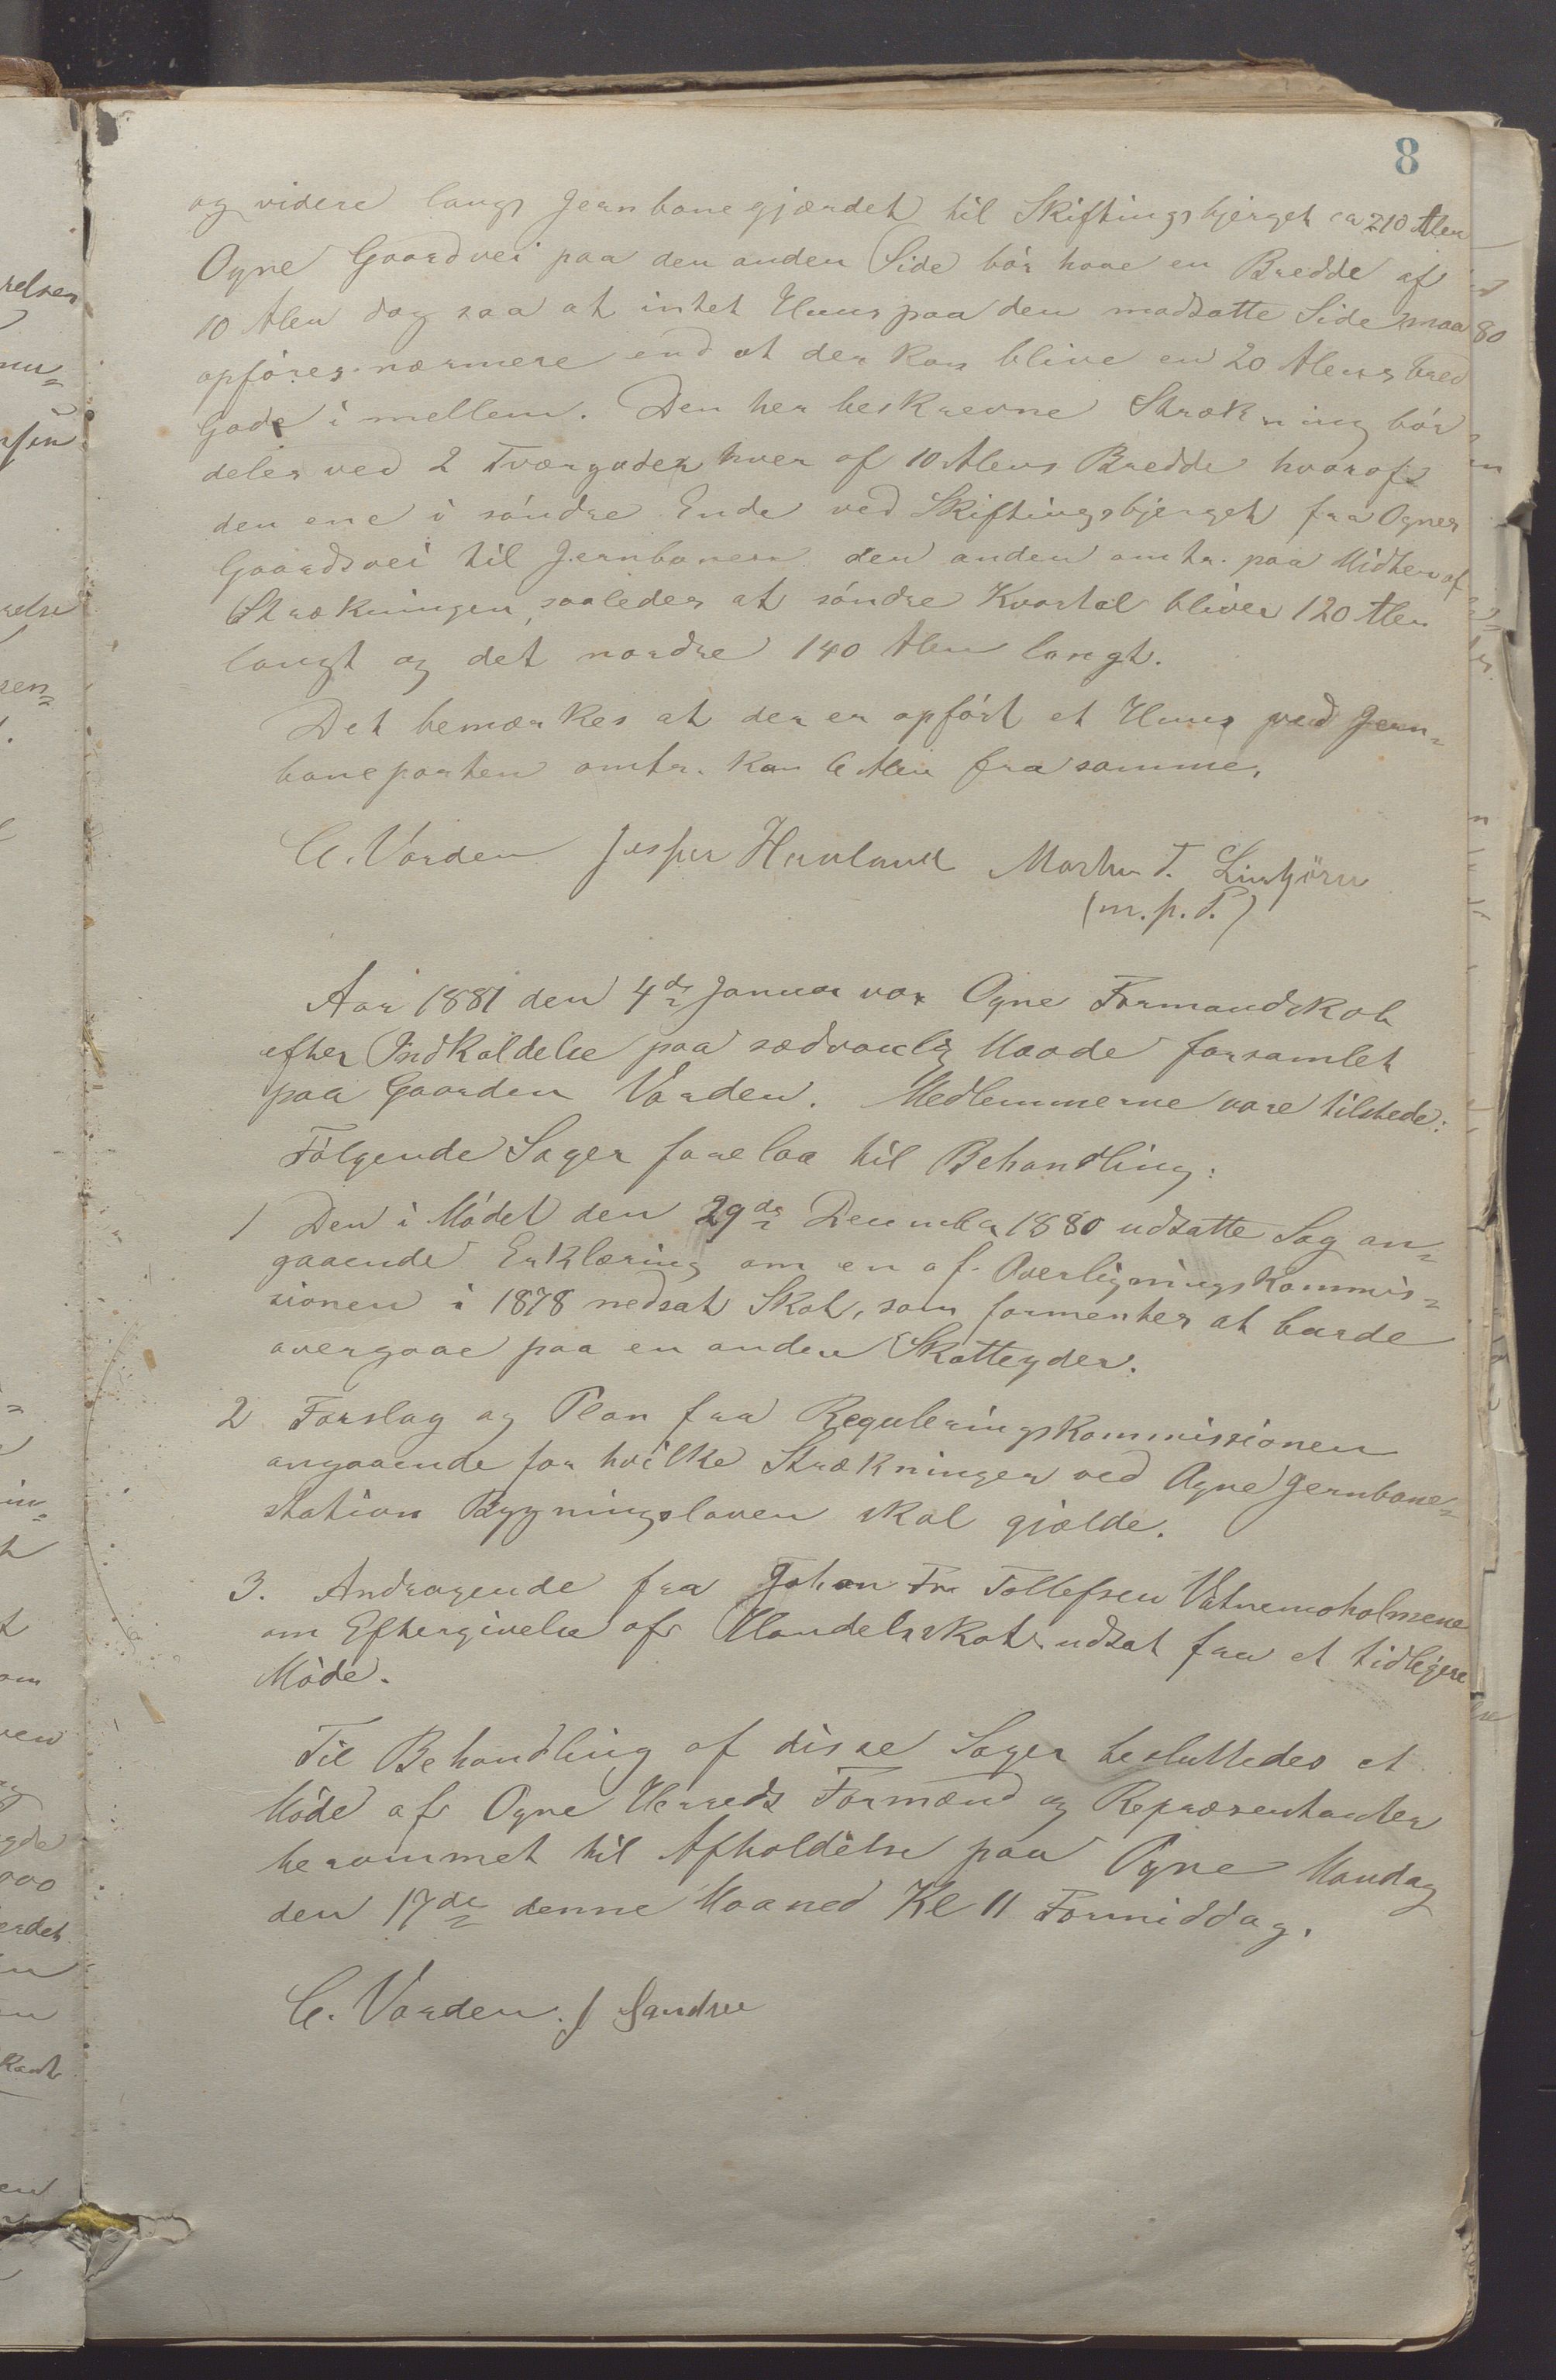 8
og videre langs Jernbanegjærdet til Skiftingsbjerget ca 210 Alen
Ogne Gaardvei paa den anden Side bör have en Bredde af
10 Alen dog saa at intet Huus paa den modsatte Side maa
opföres nærmere end at der kan blive en 20 Alens bred
Gade i mellem. Den her beskrevne Strækning bör
deles ved 2 Tværgader hver af 10 Alens Bredde hvoraf
den ene i söndre Ende ved Skiftingsbjerget fra Ognes
Gaardsvei til Jernbanen den anden omtr. paa Midten af
Strækningen, saaledes at söndre Kvartal bliver 120 Alen
langt og det nordre 140 Alen langt.
Det bemærkes at der er opfört et Huus ved Jern-
baneporten omtr. kan 6 Alen fra samme.
C. Varden Jesper Havland Marten T. Lintjörn
(m. p. P.)
Aar 1881 den 4de Januar var Ogne Formandskab
efter Indkaldelse paa sædvanlig Maade forsamlet
paa Gaarden Varden. Medlemmerne vare tilstede:
Fölgende Sager forelaa til Behandling:
1 Den i Mödet den 29de December 1880 udsatte Sag an-
gaaende Erklæring om en af Overligningskommis-
sionen i 1878 nedsat Skat, som formentes at burde
overgaae paa en anden Skatteyder.
2 Forslag og Plan fra Reguleringskommissionen
angaaende for hvilke Strækninger ved Ogne Jernbane-
station Bygningsloven skal gjælde.
3. Andragende fra Johan Tollefsen Vatnemoholmene
om Eftergivelse af Handelsskat udsat fra et tidligere
Möde.
Til Behandling af disse Sager besluttedes et
Möde af Ogne Herreds Formænd og Repræsentanter
berammet til Afholdelse paa Ogne Mandag
den 17de denne Maaned Kl 11 Formiddag.
C. Varden. J Sandsee